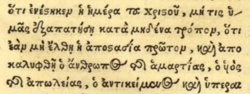 ὅτι ἐνέστηκεν ἡ ἡμέρα τοῦ χριστοῦ, μή τις ὑ
μᾶς ἐξαπατήση κατὰ μηδένα τρόπον, ὅτι
ἐὰν μὴ ἔλθη ἡ ἀποστασία πρῶτον, καὶ ἀπο
καλυφθῆ ὁ ἄνθρωπος τῆς ἁμαρτίας, ὁ υἱὸς
τῆς ἀπωλείας, ὁ ἀντικείμενος καὶ ὑπεραι